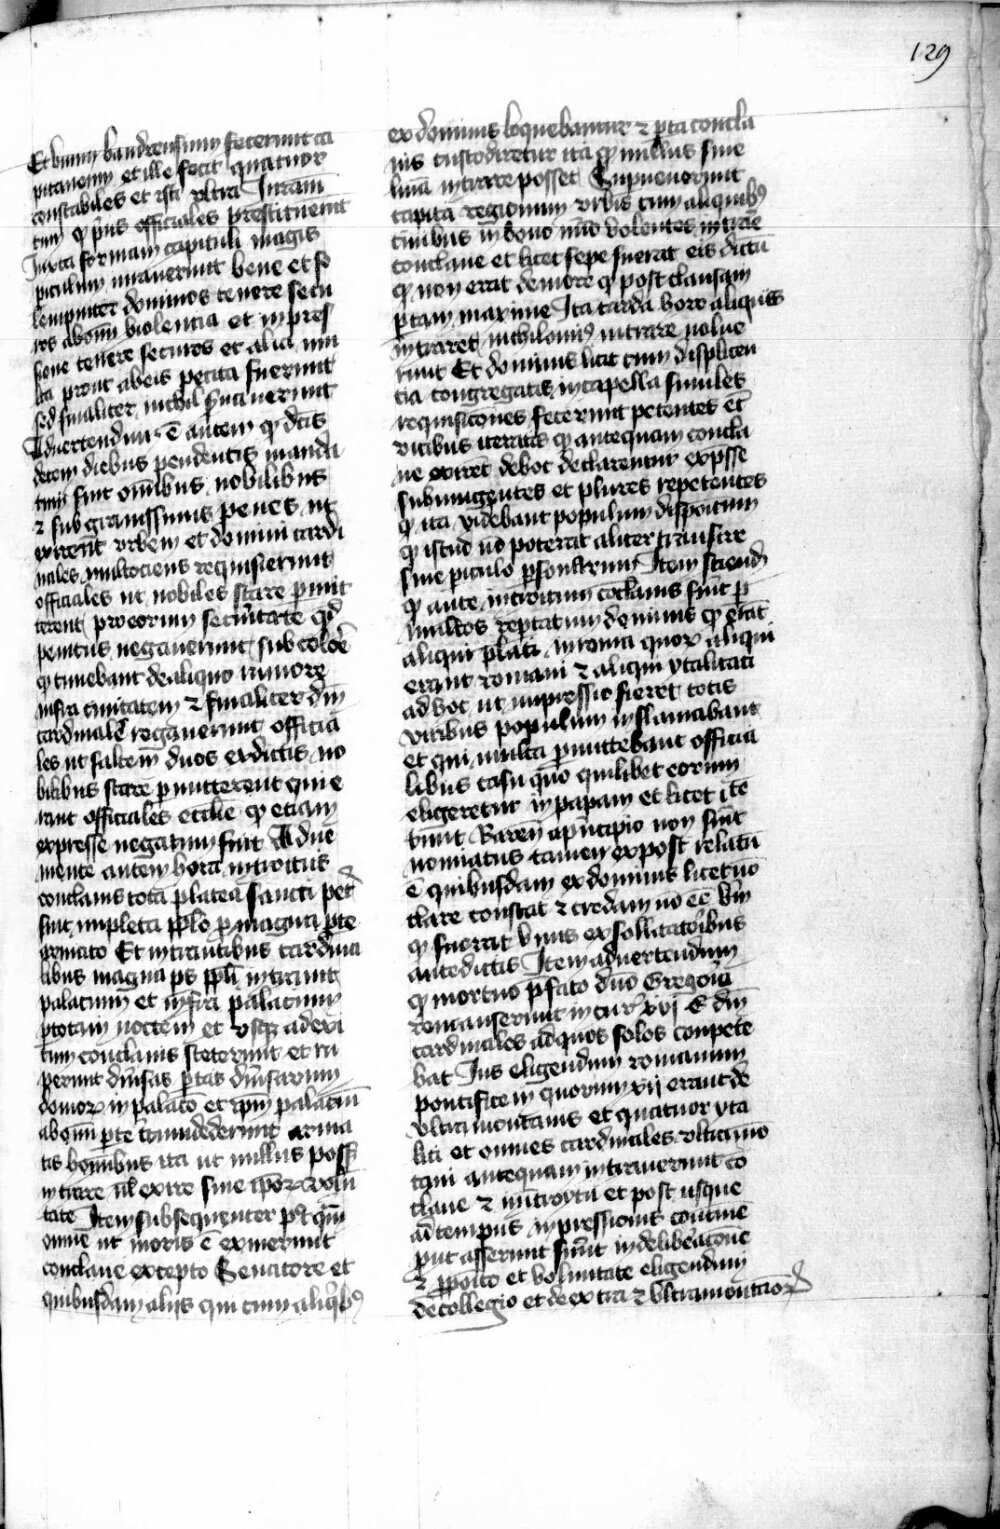 129
Et unum banderensium fecerunt ca
pitaneum et ille fecit quatuor
constabiles et isti ultra Juram̄
tum qd̄ pͥus officiales prestituerūt
Juxta formam capituli magis
piculum iurauerunt bene et so
lempniter dominos tenere secu
ros ab om̄i violencia et inpres
sione tenere securos et alia mul
ta prout ab eis petita fuerunt
sed finaliter nichil seruauerunt
Aduertendum ē autem qd̄ dc̄is
decem diebus pendentis manda
tum fuit om̄ibus nobilibus
et sub grauissimis penis ut
exirent urbem et domini cardi
nales multociens requisierunt
officiales ut nobiles stare pmit
terent pro eorum securitate qd̄
penitus negauerunt sub colore
qd̄ timebant de aliquo rumore
infra ciuitatem et finaliter dn̄i
cardinales rogauerunt officia
les ut saltem duos ex dictis no
bilibus stare permitterent qui e
rant officiales ecclie qd̄ etiam
expresse negatum fuit Adue
niente autem hora introitus
conclauis tota platea sancti pet̄
fuit impleta pplo p magna pte
armato Et intrantibus cardina
libus magna ps ppli intrauit
palacium et infra palacium
p totam noctem et usq̨ ad exi
tum conclauis steterunt et ru
perunt diuersas portas diuersarum
domorꝝ in palacio et ipm̄ palaciū
ab om̄i parte circumdederunt arma
tis hominibus ita ut nullus posset
intrare ul̄ exire sine ipōꝝ volū
tate Item subsequenter pꝰtqm̄
omnes ut moris ē exiuerunt
conclaue excepto Senatore et
quibusdam alijs qui cum aliqͥbꝰ
ex dominis loquebantur et porta concla
uis custodiretur ita qd̄ nullus sine
licentia intrare posset Superuenerunt
capita regionum urbis cum aliquibꝰ
ciuibus in bono nūo volentes intrare
conclaue et licet sepe fuerat eis dictū
qd̄ non erat de more qd̄ post clausam
portam maxime Ita tarda hora aliquis
intraret nichilominꝰ intrare uolue
runt Et dominis licit cum displicen
cia congregatis in capella similes
requisicōnes fecerunt petentes et
vicibus iteratis qd̄ antequam concla
ue exirēt de hoc declarentur expsse
subiungentes et plures repetentes
qd̄ ita videbant populum dispositum
qd̄ istud nō poterat aliter transire
sine piculo psonarum Item sciend̄
qd̄ ante introitum cōclauis fuit p
multos reportatum dominis qd̄ erāt
aliqui plati in roma quoꝝ aliqui
erant romani et aliqui ytalicati
ad hoc ut impressio fieret totis
viribus populum inflamabant
et qui multa promittebant officia
libus casu quo quilibet eorum
eligeretur in papam et licet ite
Barēn a pͥncipio non fūit
nominatus tamen ex post relatū
ē quibusdam ex dominis licet nō
clare constat et credam nō eē vm̄
qd̄ fuerat vnus ex sollicitatoribus
antedictis Item aduertendum
qd̄ mortuo pfato dn̄o Gregorio
remanserunt in cur̄ xvj dn̄i
cardinales ad quos solos conpete
bat Jus eligendum romanum
pontificem quorum xij erant de
vltramontanis et quatuor yta
lici et omnes cardinales ultramō
tani antequam intrauerunt cō
claue et in introytu et post usque
ad tempus inpressionis continue
put asserunt fuerūt in deliberacōne
et pposito et voluntate eligendum
de collegio et de extra et vltramontanoꝝ